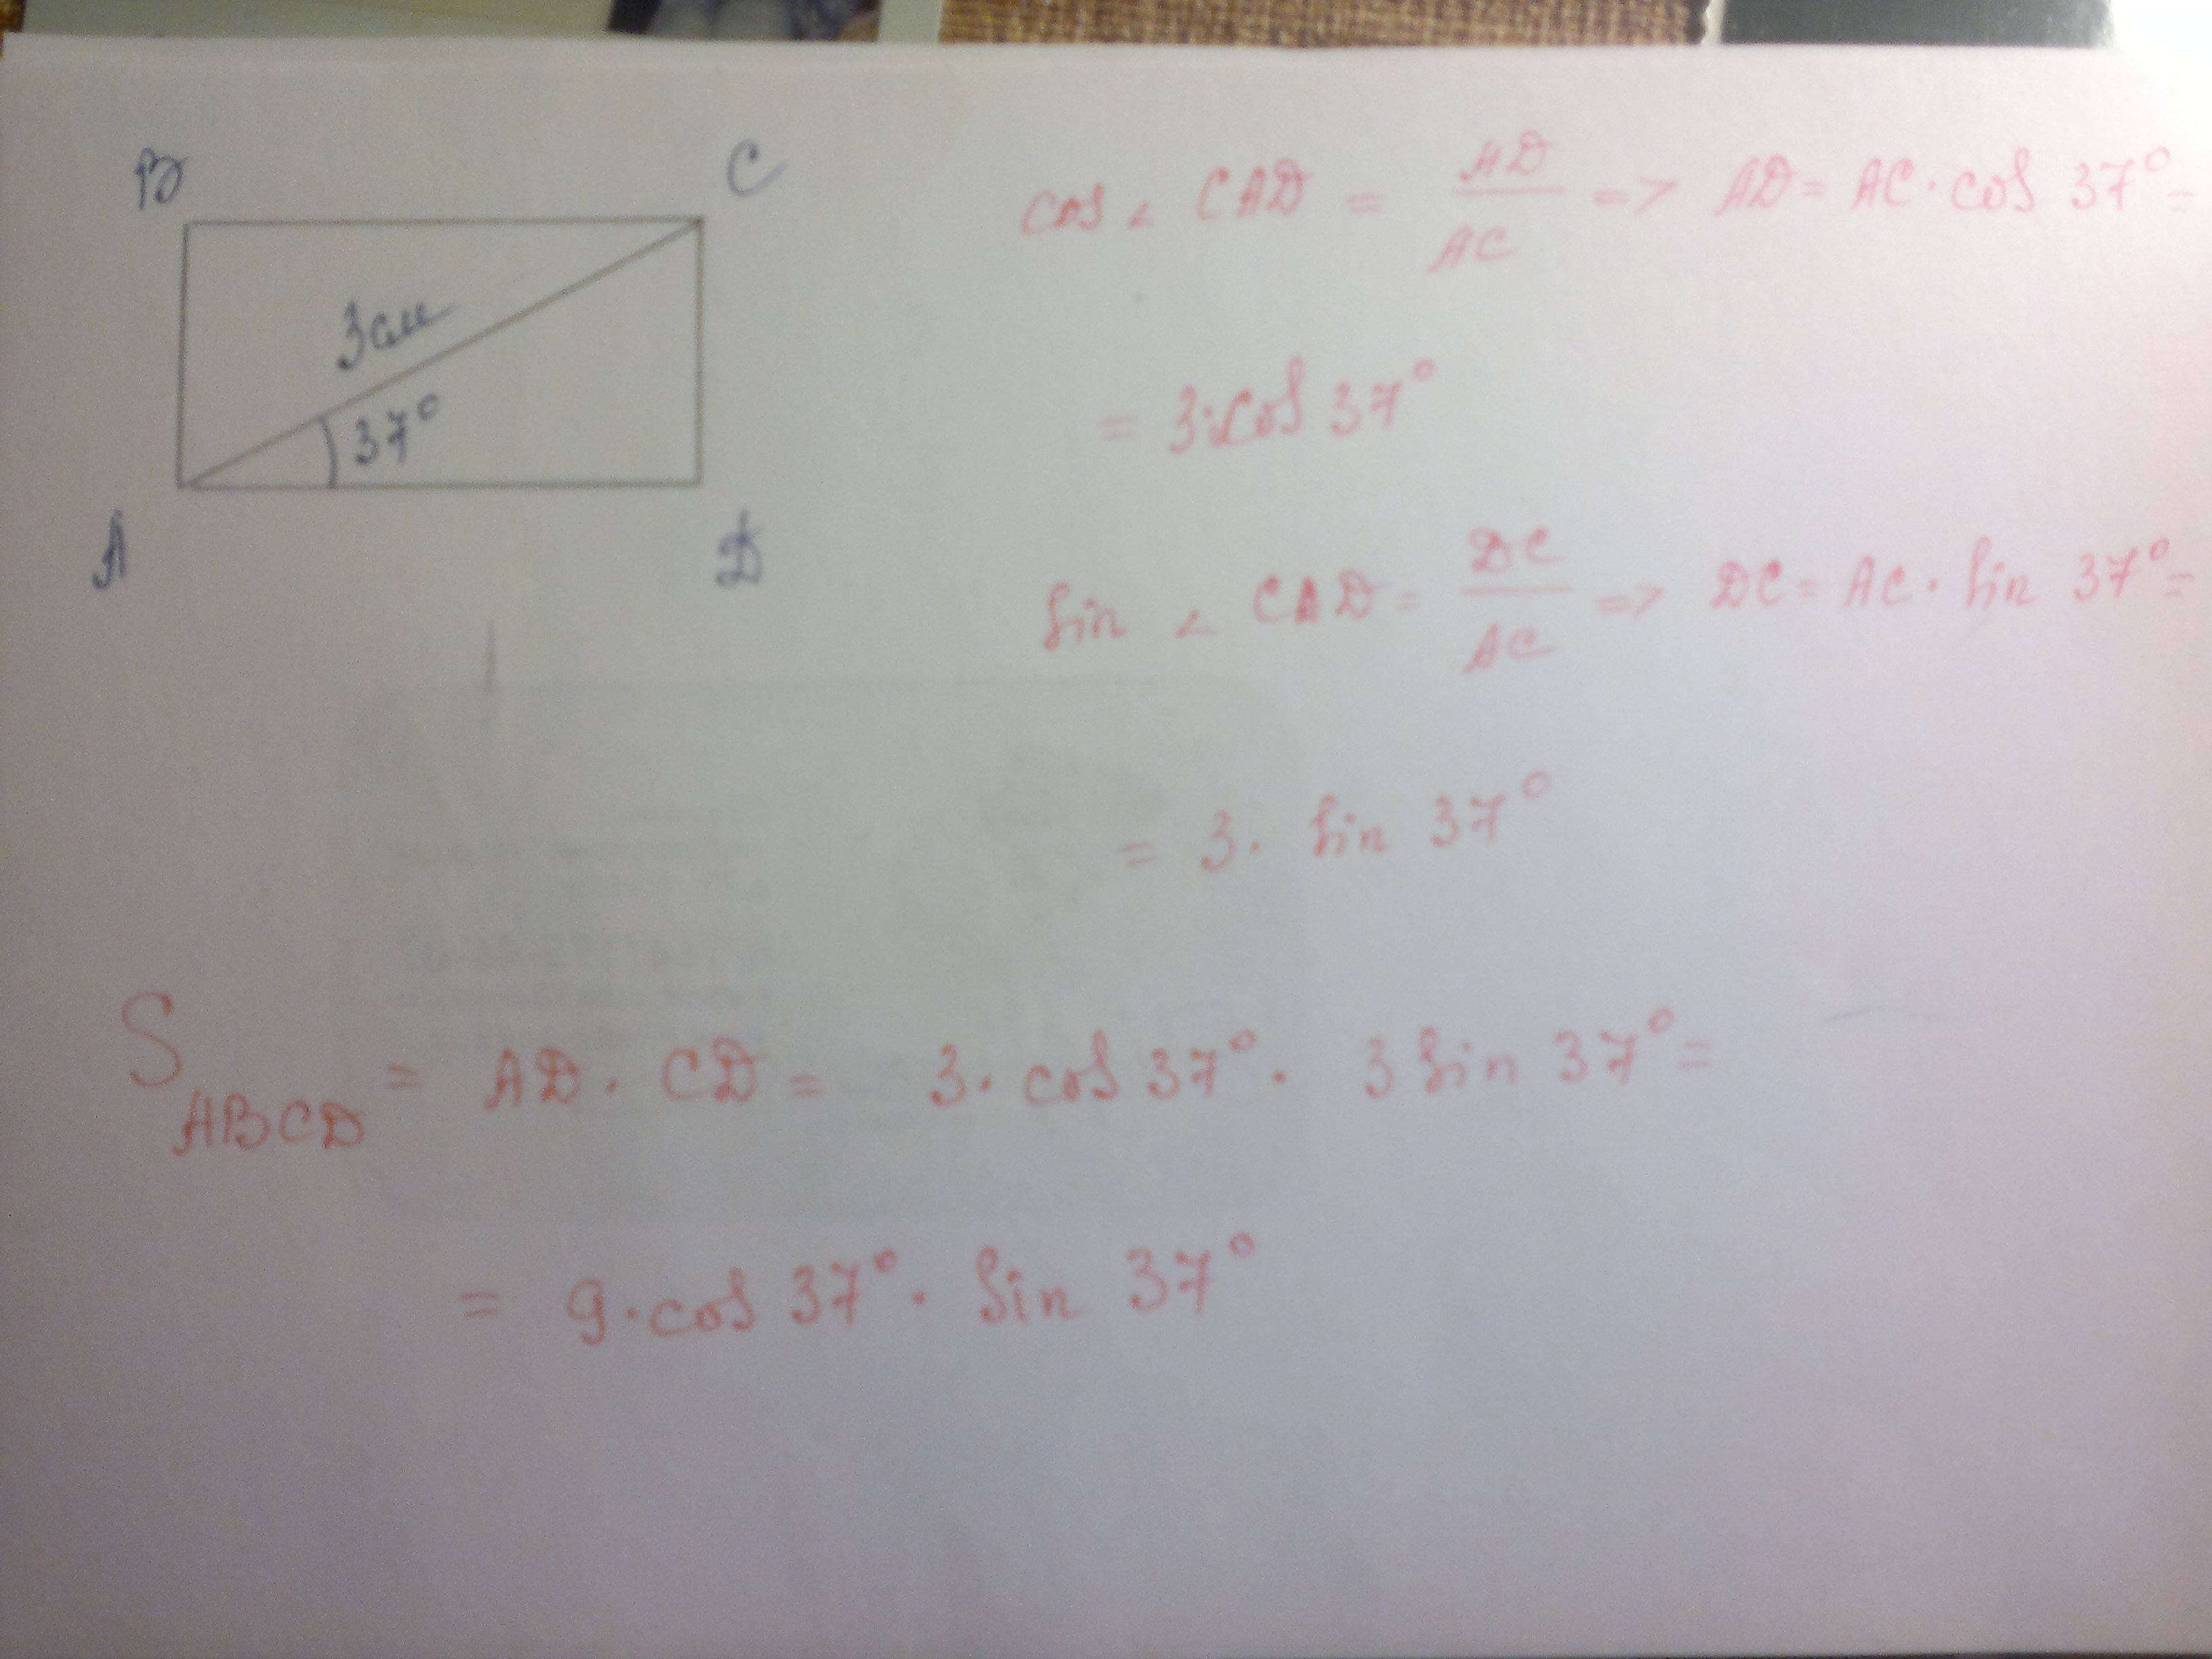 B
C
3см
37°
A
D
cos ∠ CAD = AD / AC => AD = AC · cos 37° =
= 3·cos 37°
sin ∠ CAD = DC / AC => DC = AC · sin 37° =
= 3 · sin 37°
S ABCD = AD · CD = 3 · cos 37° · 3 sin 37° =
= 9 · cos 37° · sin 37°